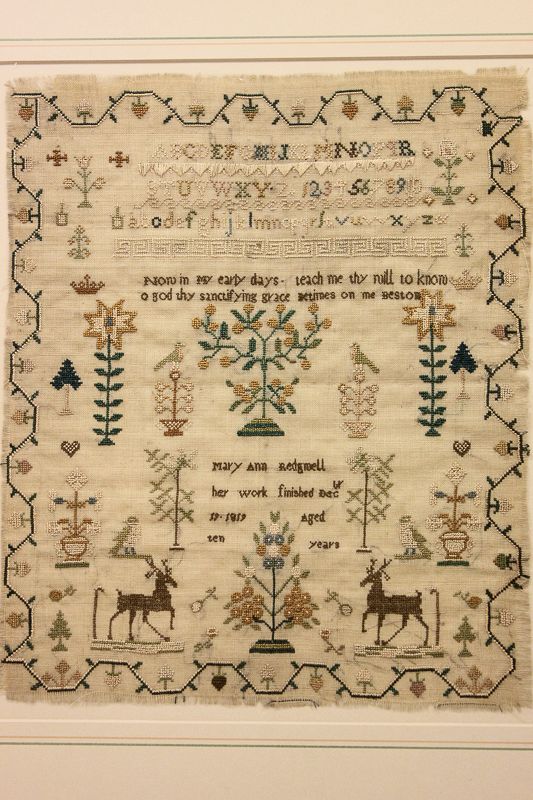 ABCDEFGHIJKLMNOPQR
STUVWXYZ 12345678910
abcdefghijklmnopqrstuvwxyz
Now in My early days · teach me thy will to know
O God thy sanctifying grace Betimes on me Bestow
Mary Ann Redgwell
her work finished Dec
1819 Aged
ten years